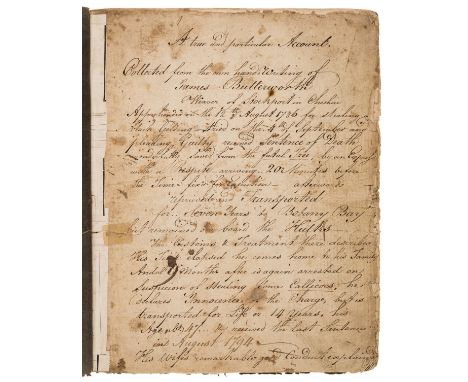 A true and particular Account
Collected from the own hand Writing of
James Butterworth
Weaver of Stockport in Cheshire
Apprehended on the 12th August 1786 for Stealing
Tried on the 4th of September and
pleading Guilty received Sentence of Death
Saved from the fatal Tree by an Express
with a Respite arriving 20 Minutes before
the Time fixed for Execution afterwards
reprieved and Transported
for Seven Years to Botany Bay
but remained on board the Hulks
The Customs & Treatment there described
His Time elapsed he comes home to his Family
And 9 Months after is again arrested on
Suspicion of Stealing Some Callicoes, he
declares Innocence to the Charge, but is
transported for Life or 14 Years, his
Age 47. received the last Sentence
in August 1794
His Wifes remarkable good Conduct explained